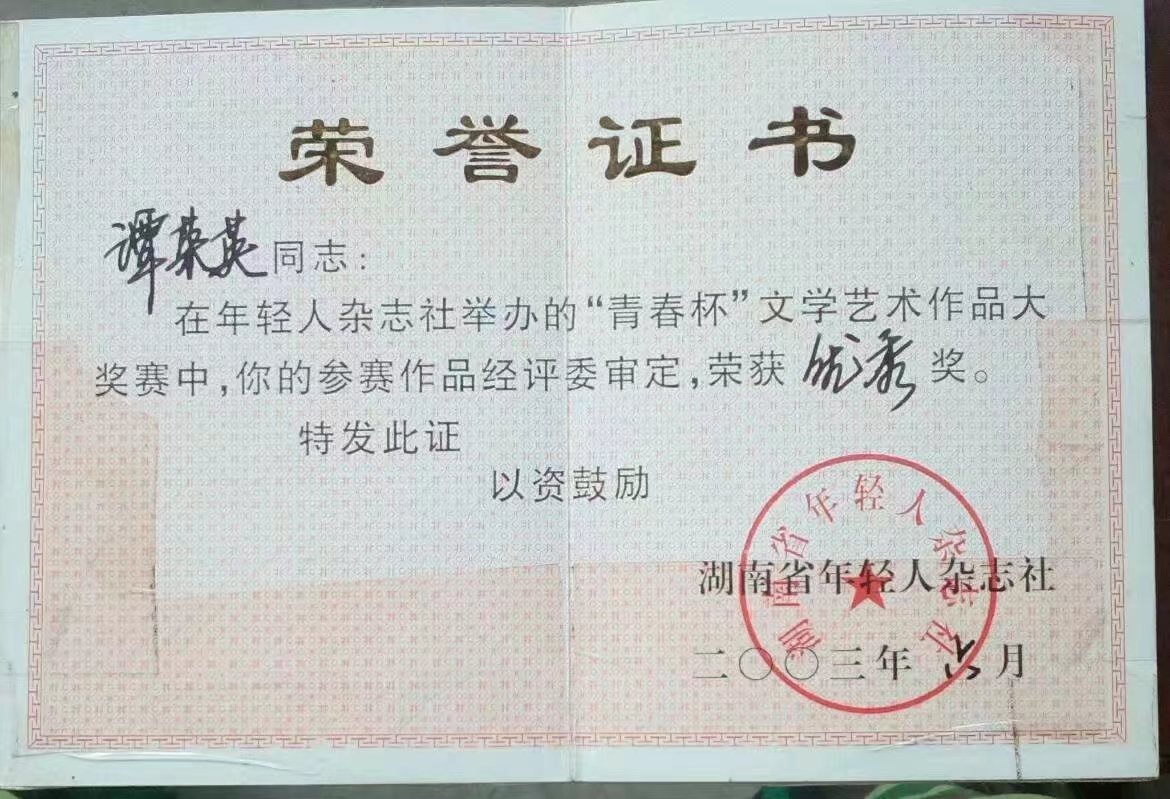 荣誉证书
谭菊英同志：
在年轻人杂志社举办的“青春杯”文学艺术作品大
奖赛中，你的参赛作品经评委审定，荣获优秀奖。
特发此证
以资鼓励
湖南省年轻人杂志社
湖南省年轻人杂志社
二〇〇三年六月